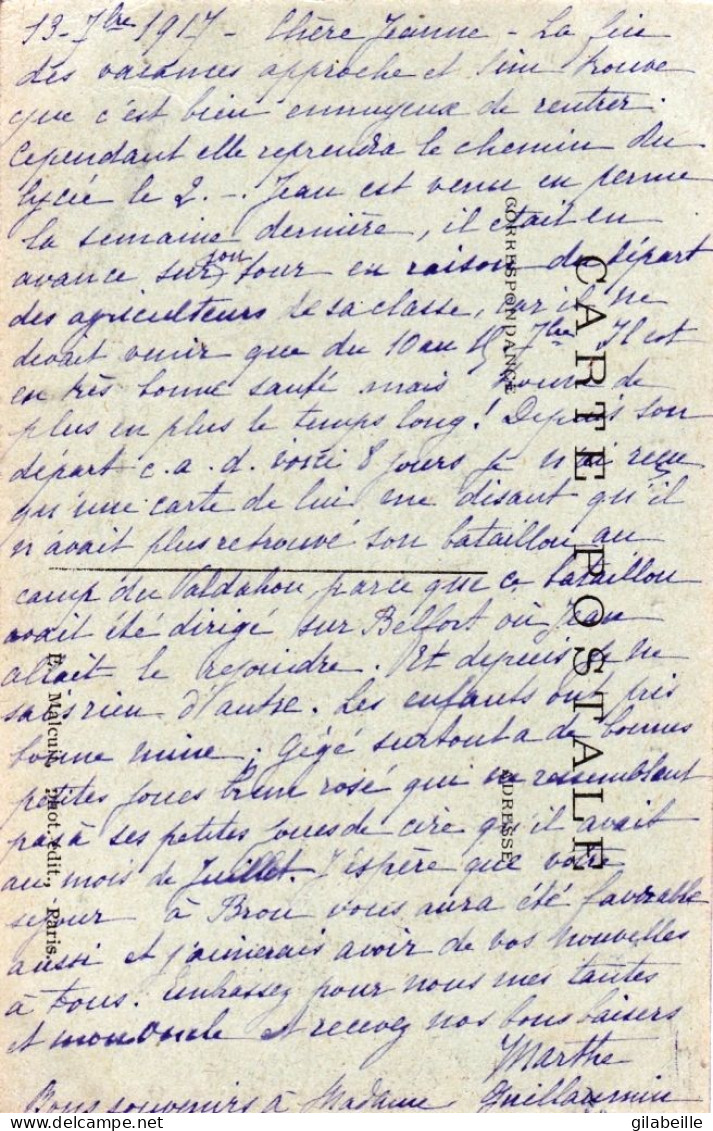 13-7bre 1917 - Chère Jeanne - La fin
des vacances approche et Simone trouve
que c'est bien ennuyeux de rentrer.
Cependant elle reprendra le chemin du
lycée le 2. - Jean est venu en perme
la semaine dernière, il était en
avance sur son tour en raison du départ
des agriculteurs de sa classe, car il ne
devait venir que du 10 au 15 7bre Il est
en très bonne santé mais trouve de
plus en plus le temps long! Depuis son
départ c. a. d. voici 8 jours je n'ai reçu
qu'une carte de lui me disant qu'il
n'avait plus retrouvé son bataillon au
camp du Valdahon, parce que ce bataillon
avait été dirigé sur Belfort où Jean
allait le rejoindre. Et depuis je ne
sais rien d'autre. Les enfants ont pris
bonne mine; Gégé surtout a de bonnes
petites joues bien rosé qui ne ressemblent
pas à ses petites joues de cire qu'il avait
au mois de Juillet. J'espère que votre
sejour à Brou vous aura été favorable
aussi et j'aimerais avoir de vos nouvelles
à tous. Embrassez pour nous mes tantes
et mon oncle et recevez nos bons baisers
Marthe
Bons souvenirs à Madame Guillaumin
CARTE POSTALE
CORRESPONDANCE
ADRESSE
E. Malcuit, phot. édit., Paris.
gilabeille